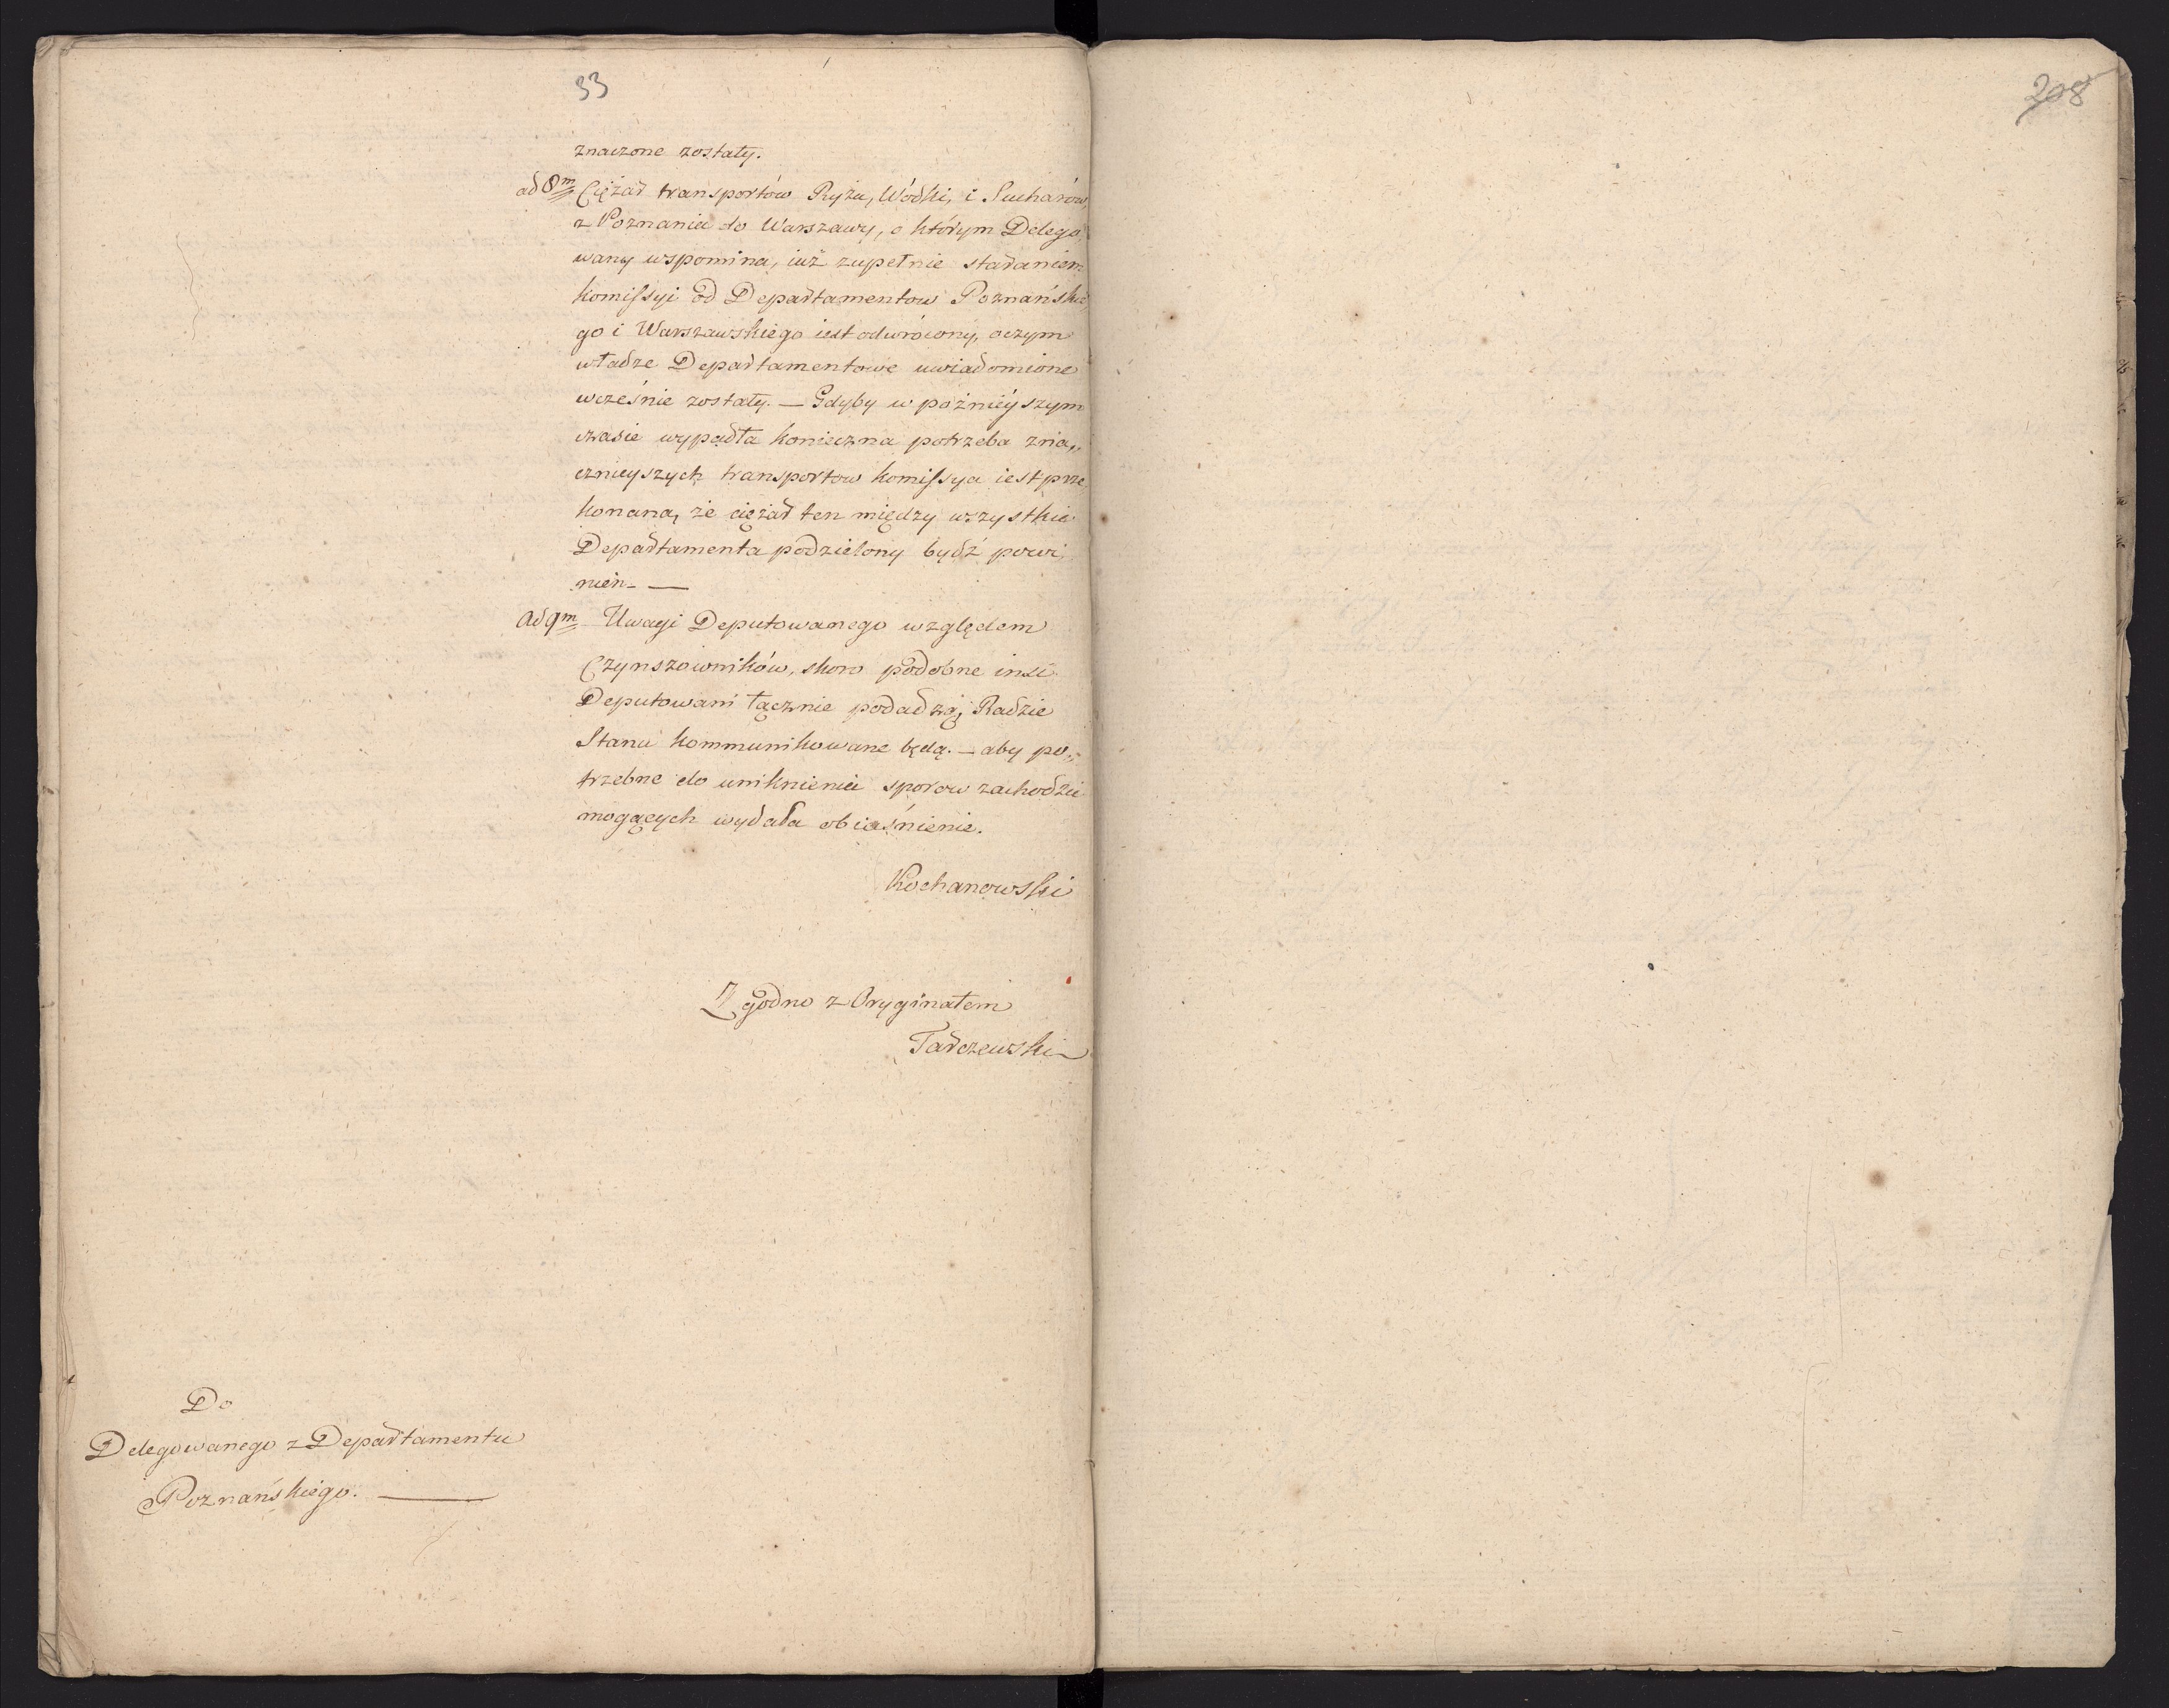 33
208
znaczone zostały.
ad 8m Ciężar transportów Ryżu, Wódki, i Sucharów,
z Poznania do Warszawy, o którym Delego,
wany wspomina, iuż zupełnie staraniem
Komissyi od Departamentow Poznańskie,
go i Warszawskiego iest odwrócony, oczym
władze Departamentowe uwiadomione
wcześnie zostały. — Gdyby w pożnieyszym
czasie wypadła konieczna potrzeba zna,,
cznieyszych transportow Komissya iest prze
konana, że ciężar ten między wszystkie
Departamenta podzielony bydź powi,
nien. —
Ad 9m Uwagi Deputowanego względem
Czynszowników, skoro podobne insi
Deputowani łącznie podadzą, Radzie
Stanu kommunikowane będą. — aby po,,
trzebne do uniknienia sporow zachodzić
mogących wydała obiaśnienie.
Kochanowski
Zgodno z Oryginałem
Tarczewski
Do
Delegowanego z Departamentu
Poznańskiego. —